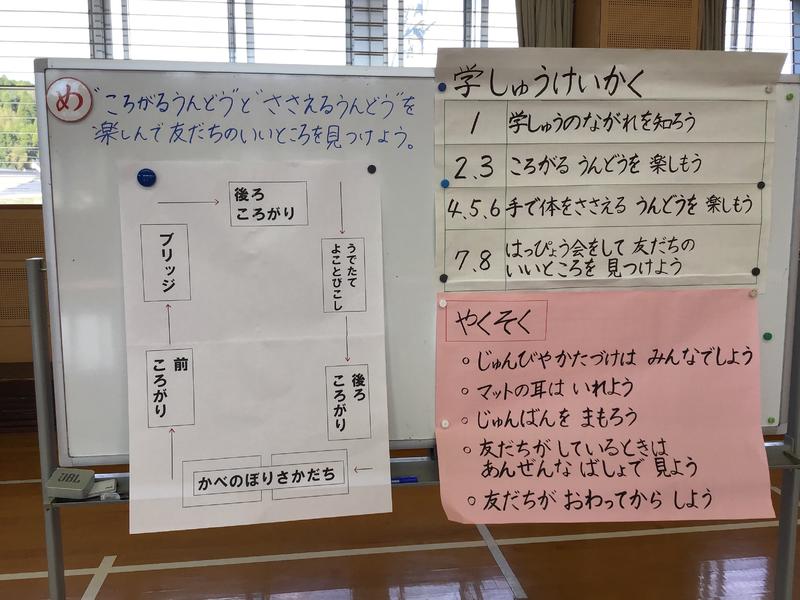 め "ころがるうんどう"と"ささえるうんどう"を
楽しんで友だちのいいところを見つけよう。
後ろ
ころがり
うでたて
よことびこし
後ろ
ころがり
かべのぼりさかだち
前
ころがり
ブリッジ
学しゅうけいかく
1 学しゅうのながれを知ろう
2.3 ころがる うんどうを 楽しもう
4.5.6 手で体をささえる うんどうを 楽しもう
7.8 はっぴょう会をして 友だちの
いいところを 見つけよう
やくそく
○ じゅんびやかたづけは みんなでしよう
○ マットの耳は いれよう
○ じゅんばんを まもろう
○ 友だちが しているときは
あんぜんな ばしょで 見よう
○ 友だちが おわってから しよう
JBL